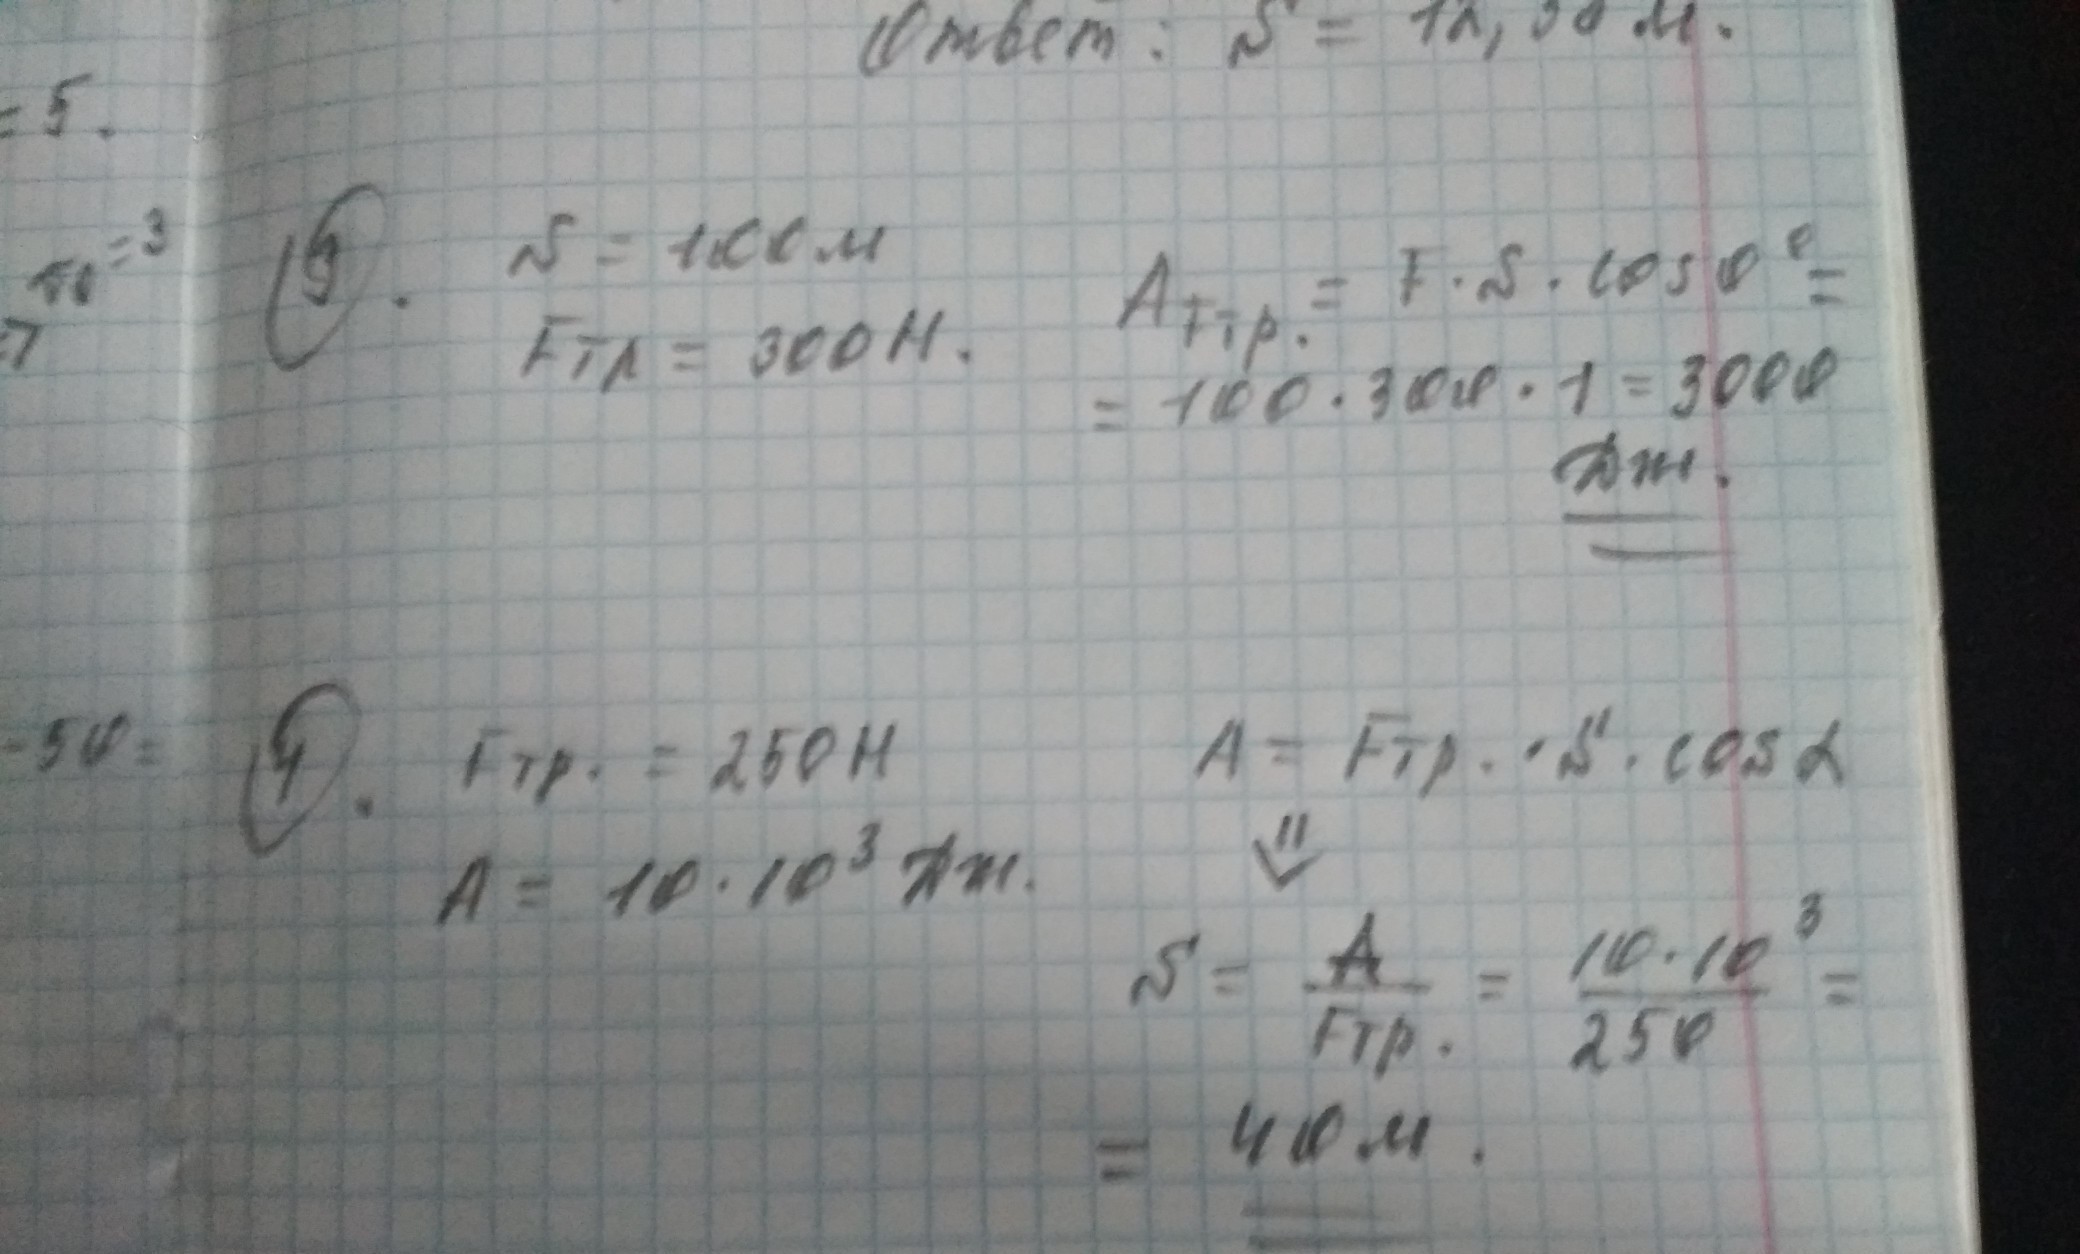 Ответ: S = 12,
= 5.
= 3
3. S = 100 м
Fтр = 300 Н.
Aтр. = F · S · cos 0° =
= 100 · 300 · 1 = 3000
Дж.
- 50 =
4. Fтр. = 250 Н
A = 10 · 10³ Дж.
A = Fтр. · S · cos α
⇓
S = A / Fтр. = 10 · 10³ / 250 =
= 40 м.